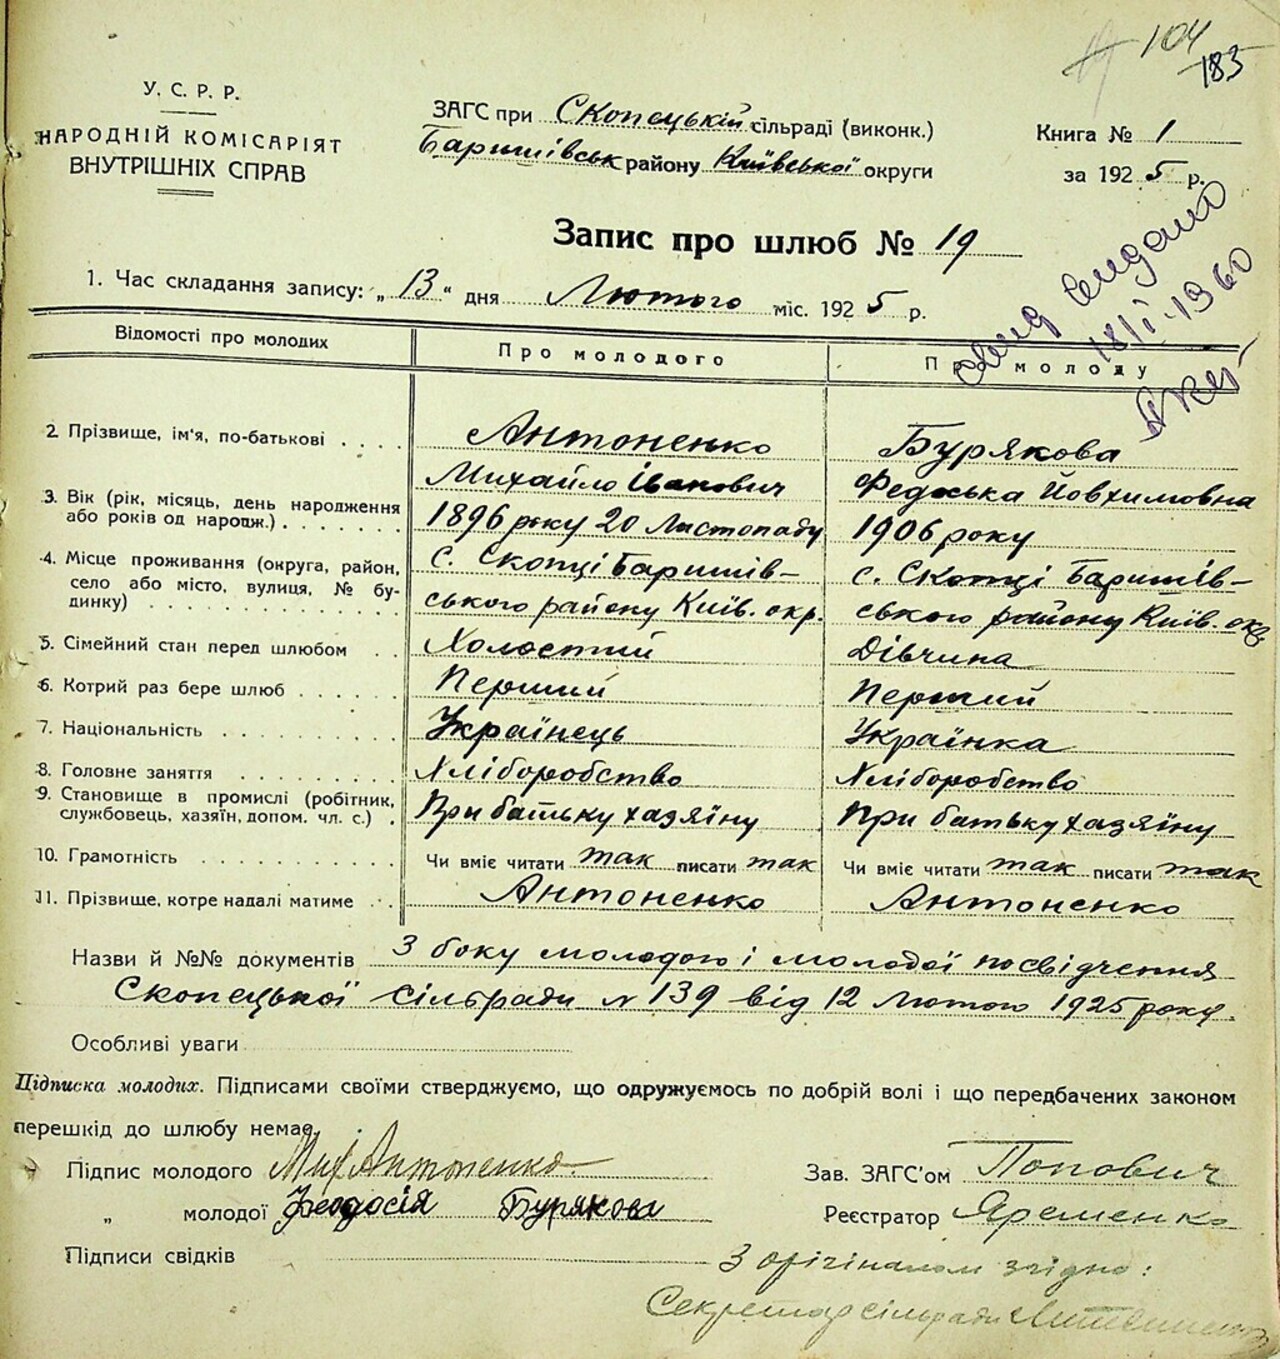 104
183
У. С. Р. Р.
НАРОДНІЙ КОМІСАРІЯТ
ВНУТРІШНІХ СПРАВ
ЗАГС при Скопецькій сільраді (виконк.)
Баришівськ району Київської округи
Книга № 1
за 1925 р.
Запис про шлюб № 19
1. Час складання запису: „13“ дня Лютого міс. 1925 р.
18/I-1960
Відомості про молодих
Про молодого
Про молоду
2. Прізвище, ім'я, по-батькові
Антоненко
Бурякова
Михайло Іванович
Федоська Йовхимовна
3. Вік (рік, місяць, день народження
або років од народж.)
1896 року 20 Листопаду
1906 року
4. Місце проживання (округа, район,
село або місто, вулиця, № бу-
динку)
с. Скопці Баришів-
ського району Київ. окр.
с. Скопці Баришів-
ського району Київ. окр.
5. Сімейний стан перед шлюбом
Холостий
Дівчина
6. Котрий раз бере шлюб
Перший
Перший
7. Національність
Українець
Українка
8. Головне заняття
Хліборобство
Хліборобство
9. Становище в промислі (робітник,
службовець, хазяїн, допом. чл. с.)
При батьку хазяїну
При батьку хазяїну
10. Грамотність
Чи вміє читати так писати так
Чи вміє читати так писати так
11. Прізвище, котре надалі матиме
Антоненко
Антоненко
Назви й №№ документів З боку молодого і молодої посвідчення
Скопецької сільради № 139 від 12 лютого 1925 року.
Особливі уваги
Підписка молодих. Підписами своїми стверджуємо, що одружуємось по добрій волі і що передбачених законом
перешкід до шлюбу немає.
Підпис молодого Мих Антоненко
„ молодої Феодосія Бурякова
Підписи свідків
Зав. ЗАГС'ом Попович
Реєстратор Яременко
З орігіналом згідно:
Секретар сільради